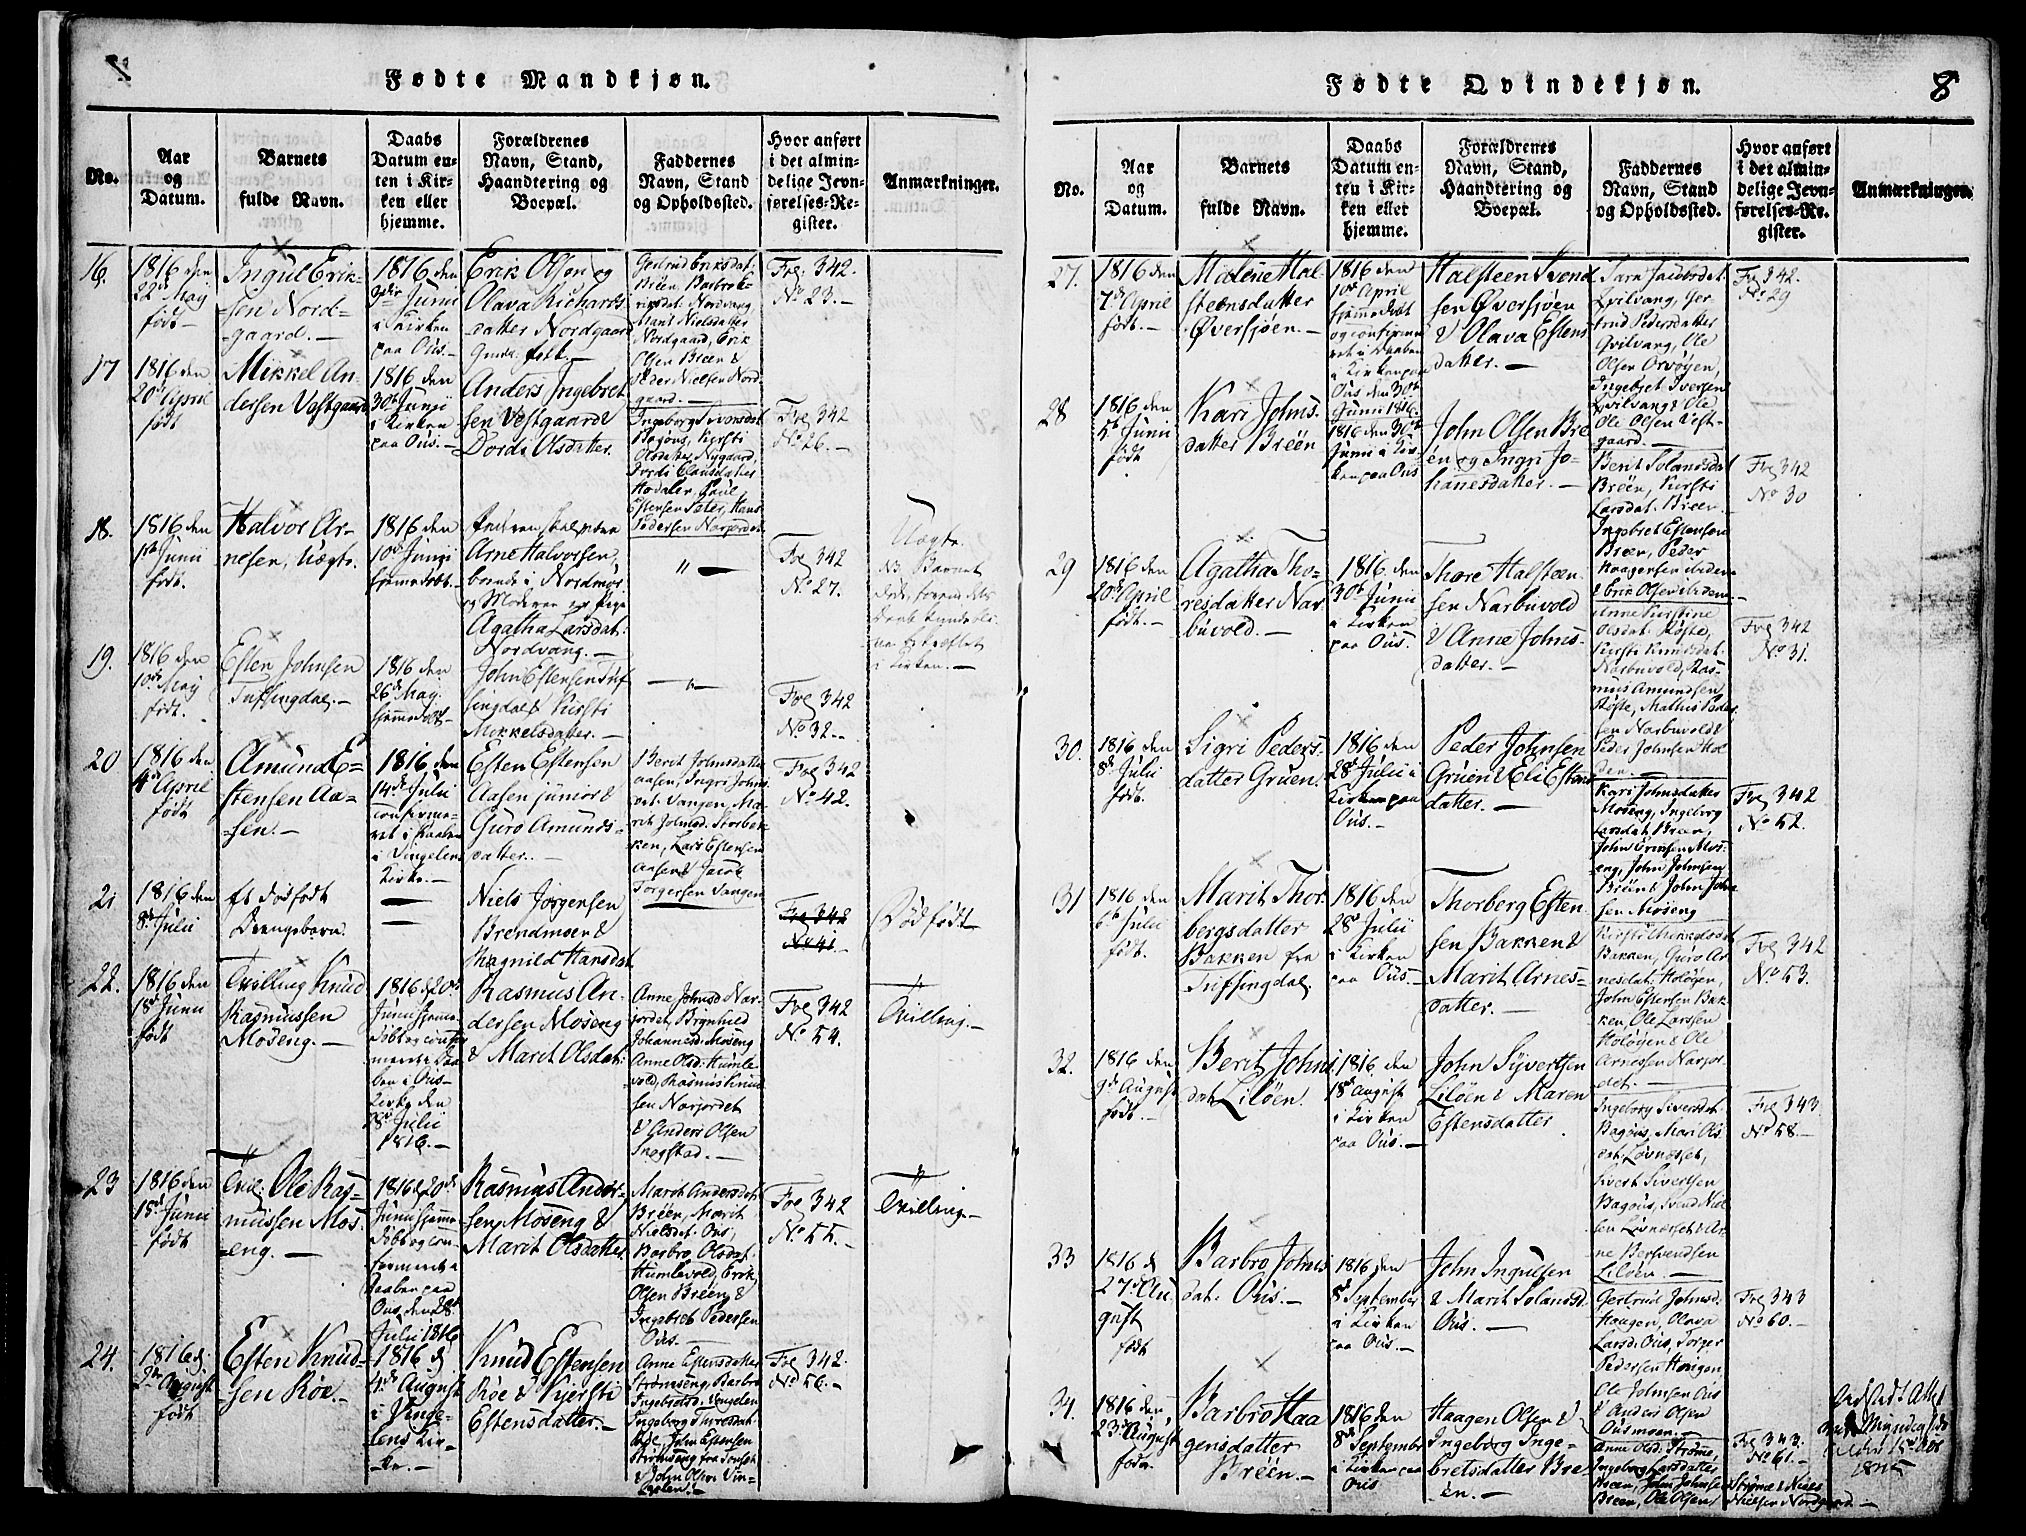 Fødte Mandkjøn.
No.
Aar
og
Datum.
Barnets
fulde Navn.
Daabs
Datum en-
ten i Kir-
ken eller
hjemme.
Forældrenes
Navn, Stand,
Haandtering og
Boepæl.
Faddernes
Navn, Stand
og Opholdssted.
Hvor anført
i det almin-
delige Jevn-
førelses-Re-
gister.
Anmærkninger.
16.
1816 den
22 May
født
Ingul Erik-
sen Nord-
gaard.
1816 den
Junii
i Kirken
paa Ous.
Erik Olsen og
Olava Richards
datter Nordgaard
Gertrud Eriksdat.
Bréen, Barbro
Nordvang
Marit Nielsdatter
Nordgaard, Erik
Olsen Bréen &
Peder Nielsen Nord-
gaard.
Fol 342.
No 23.
17
1816 den
20d April
født
Mikkel An-
dersen Vestgaard
1816 den
30te Junii
i Kirken
paa Ous.
Anders Ingebret
sen Vestgaard &
Dordi Olsdatter
Ingeborg Siversdat.
Bagøus, Kirsti
Olsdatter Nygaard,
Dordi Clausdatter
Hodaler, Poul
Estensen Sater, Hans
Pedersen Narjordet
Fol 342
No 26.
18.
1816 den
Junii
født.
Halvor Ar-
nesen, Uægte.
1816 den
10d Junii
hjemedøbt.
Arne Halvorsen,
boende i Nordmør
og Moderen er Pige
Agatha Larsdat.
Nordvang.
"
Fol 342
No 27.
Uægte.
NB Barnet
døde forend dets
Daab kundeli-
i Kirken.
19.
1816 den
10de May
født.
Esten Johnsen
Tufsingdal.
1816 den
26d May
hjemedøbt
John Estensen Tuf
singdal & Kirsti
Mikkelsdatter.
"
Fol 342
No 32.
20
1816 den
4d April
født
Amund E-
stensen Aa-
sen.
1816 den
14de Julii
confirme-
ret i Daaben
i Vingelens
Kirke.
Esten Estensen
Aasen junior &
Guro Amunds-
datter.
Berit Johnsdatter
Aasen, Ingri Johns
dat. Vangen, Ma-
rit Johnsd. Storbek-
ken, Lars Estensen
Aasen & Jacob
Torgersen Vangen
Fol 342
No 42.
21
1816 den
8d Julii
et dødfødt
Drengebarn.
Niels Jørgensen
Brendmoen &
Magnild Hansdat.
Fol 342
No 41.
Dødfødt
22.
1816 den
18d Junii
født
Tvilling Knud
Rasmussen
Moseng.
1816 d 20d
Junii hjeme-
døbt og confir-
meret i Daa-
ben i Ous-
Kirke den
28d Julii
1816.
Rasmus An-
dersen Moseng
& Marit Olsdat.
Anne Johnsd Nar-
jordet, Brynhild
Johannesd. Moseng
Anne Olsd. Humle
vold, Rasmus Knud
sen Narjordet
& Anders Olsen
Fol 342
No 54.
Tvilling.
23
1816 den
18d Junii
født
Tvil: Ole Ras-
mussen Mos-
eng.
1816 d 20d
Junii hjeme-
døbt og con-
firmeret i
Daaben paa
Ous, den 28d
Julii 1816
Rasmus Ander-
sen Moseng &
Marit Olsdatter
Marit Andersdat.
Bréen, Marit
Nielsdat. Ous,
Barbro Olsdat.
Humlevold, Erik
Olsen Bréen &
Ingebret Pedersen
Ous.
Fol 342
No 55.
Tvilling.
24.
1816 d.
2den August
født
Esten Knud-
sen Röe.
1816 d
4d August
i Vinge-
lens Kir-
ke.
Knud Estensen
Röe & Kjersti
Estensdatter.
Anne Estensdatter
Strømseng, Barbro
Ingebretsd. Vingelen
Ingeborg Thoresdat.
Röe, John Estensen
Strømseng
& John Olsen Vin-
gelen.
Fol 342.
No 56.
Fødte Qvindekjøn.
8
No.
Aar
og
Datum.
Barnets
fulde Navn.
Daabs
Datum en-
ten i Kir-
ken eller
hjemme.
Forældrenes
Navn, Stand,
Haandtering og
Boepæl.
Faddernes
Navn, Stand
og Opholdssted.
Hvor anført
i det almin-
delige Jevn-
førelses-Re-
gister.
Anmærkninger.
27.
1816 den
7d April
født.
Malene Hal-
steensdatter
Øversjøen.
1816 den
10d April
hjemmedøbt
og confirme-
ret i Daaben
i Kirken paa
Ous den 30te
Junii 1816.
Halsteen Svend
sen Øversjøen
& Olava Estens
datter.
Qvilvang, Ger-
trud Pedersdatter
Qvilvang, Ole
Olsen Orvøyen,
Ingebret Iversen
Qvilvang & Ole
Ole Olsen Vest-
gaard.
Fol 342.
No 29
28
1816 den
5te Junii
født
Kari Johns-
datter Bréen
1816 den 30te
Junii i Kir-
ken paa Ous
John Olsen Bre
en og Ingri Jo-
hanesdatter.
Berit Solansdat
Bréen, Kirsti
Larsdat. Breen
Ingebret Estensen
Breen, Peder
Haagensen ibidem
& Erik Olsen ibidem.
Fol 342
No 30
29
1816 den
20d April
født.
Agatha Tho-
resdatter Nar-
buvold.
1816 den
30te Junii
i Kirken
paa Ous.
Thore Halsteen
sen Narbuvold
& Anne Johns-
datter.
Anne Kirstine
Olsdat. Røste,
Kirsti Knudsdat.
Narbuvold, Ras-
mus Amundsen
Røste, Mathis Peder
sen Narbuvold &
Peder Johnsen Hol
den.
Fol 342
No 31.
30.
1816 den
8d Julii
født.
Sigri Peders-
datter Gruen.
1816 den
28d Julii i
Kirken paa
Ous.
Peder Johnsen
Gruen & Eli Estens
datter.
Kari Johnsdatter
Moseng, Ingeborg
Larsdat. Breen,
John Eriksen Mos-
eng, John Johnsen
Bréen & John John
sen Moseng
Fol 342
No 52.
31
1816 den
6te Julii
født.
Marit Thor-
bergsdatter
Bakken fra
Tufsingdal.
1816 den
28d Julii
i Kirken
paa Ous.
Thorberg Esten
sen Bakken &
Marit Arnes-
datter.
Bakken, Guro Ar-
nesdat. Holøyen,
John Estensen Bak-
ken, Ole Larssen
Holøyen & Ole
Arnessen Narjor-
det.
Fol 342
No 53.
32.
1816 den
9d August
født.
Berit Johns
dat. Liløen.
1816 den
18d August
i Kirken
paa Ous.
John Syvertsen
Liløen & Maren
Estensdatter
Ingeborg Siversdat.
Bagøus, Mari Ols
dat. Løvnesset,
Sivert Sivertsen
Bagøus, Svend Niel
sen Løvnesset & Ar-
ne Bersvendsen
Liløen.
Fol 343
No 58.
33
1816 d
27d Au-
gust
født
Barbro Johns
dat. Ous.
1816 den
8d September
i Kirken
paa Ous.
John Ingulsen
& Marit Solansd.
Ous.
Gertrud Johnsd.
Haagen, Olava
Larsd. Ous, Torger
Pedersen Haugen
Ole Johnsen Ous
& Anders Olsen
Ousmoen.
Fol 343
No 60.
34.
1816 den
23d August
født.
Barbro Haa
gensdatter
Bréen.
1816 den
8d Septembr
i Kirken paa
Ous
Haagen Olsen &
Ingeborg Inge-
bretsdatter Bre-
en.
Anne Olsd. Strømme,
Ingeborg Larsdatter
Breen, John Johnsen
Breen, Ole Olsen
Strømme & Niels
Nielsen Nordgaard.
Fol 343.
No 61.